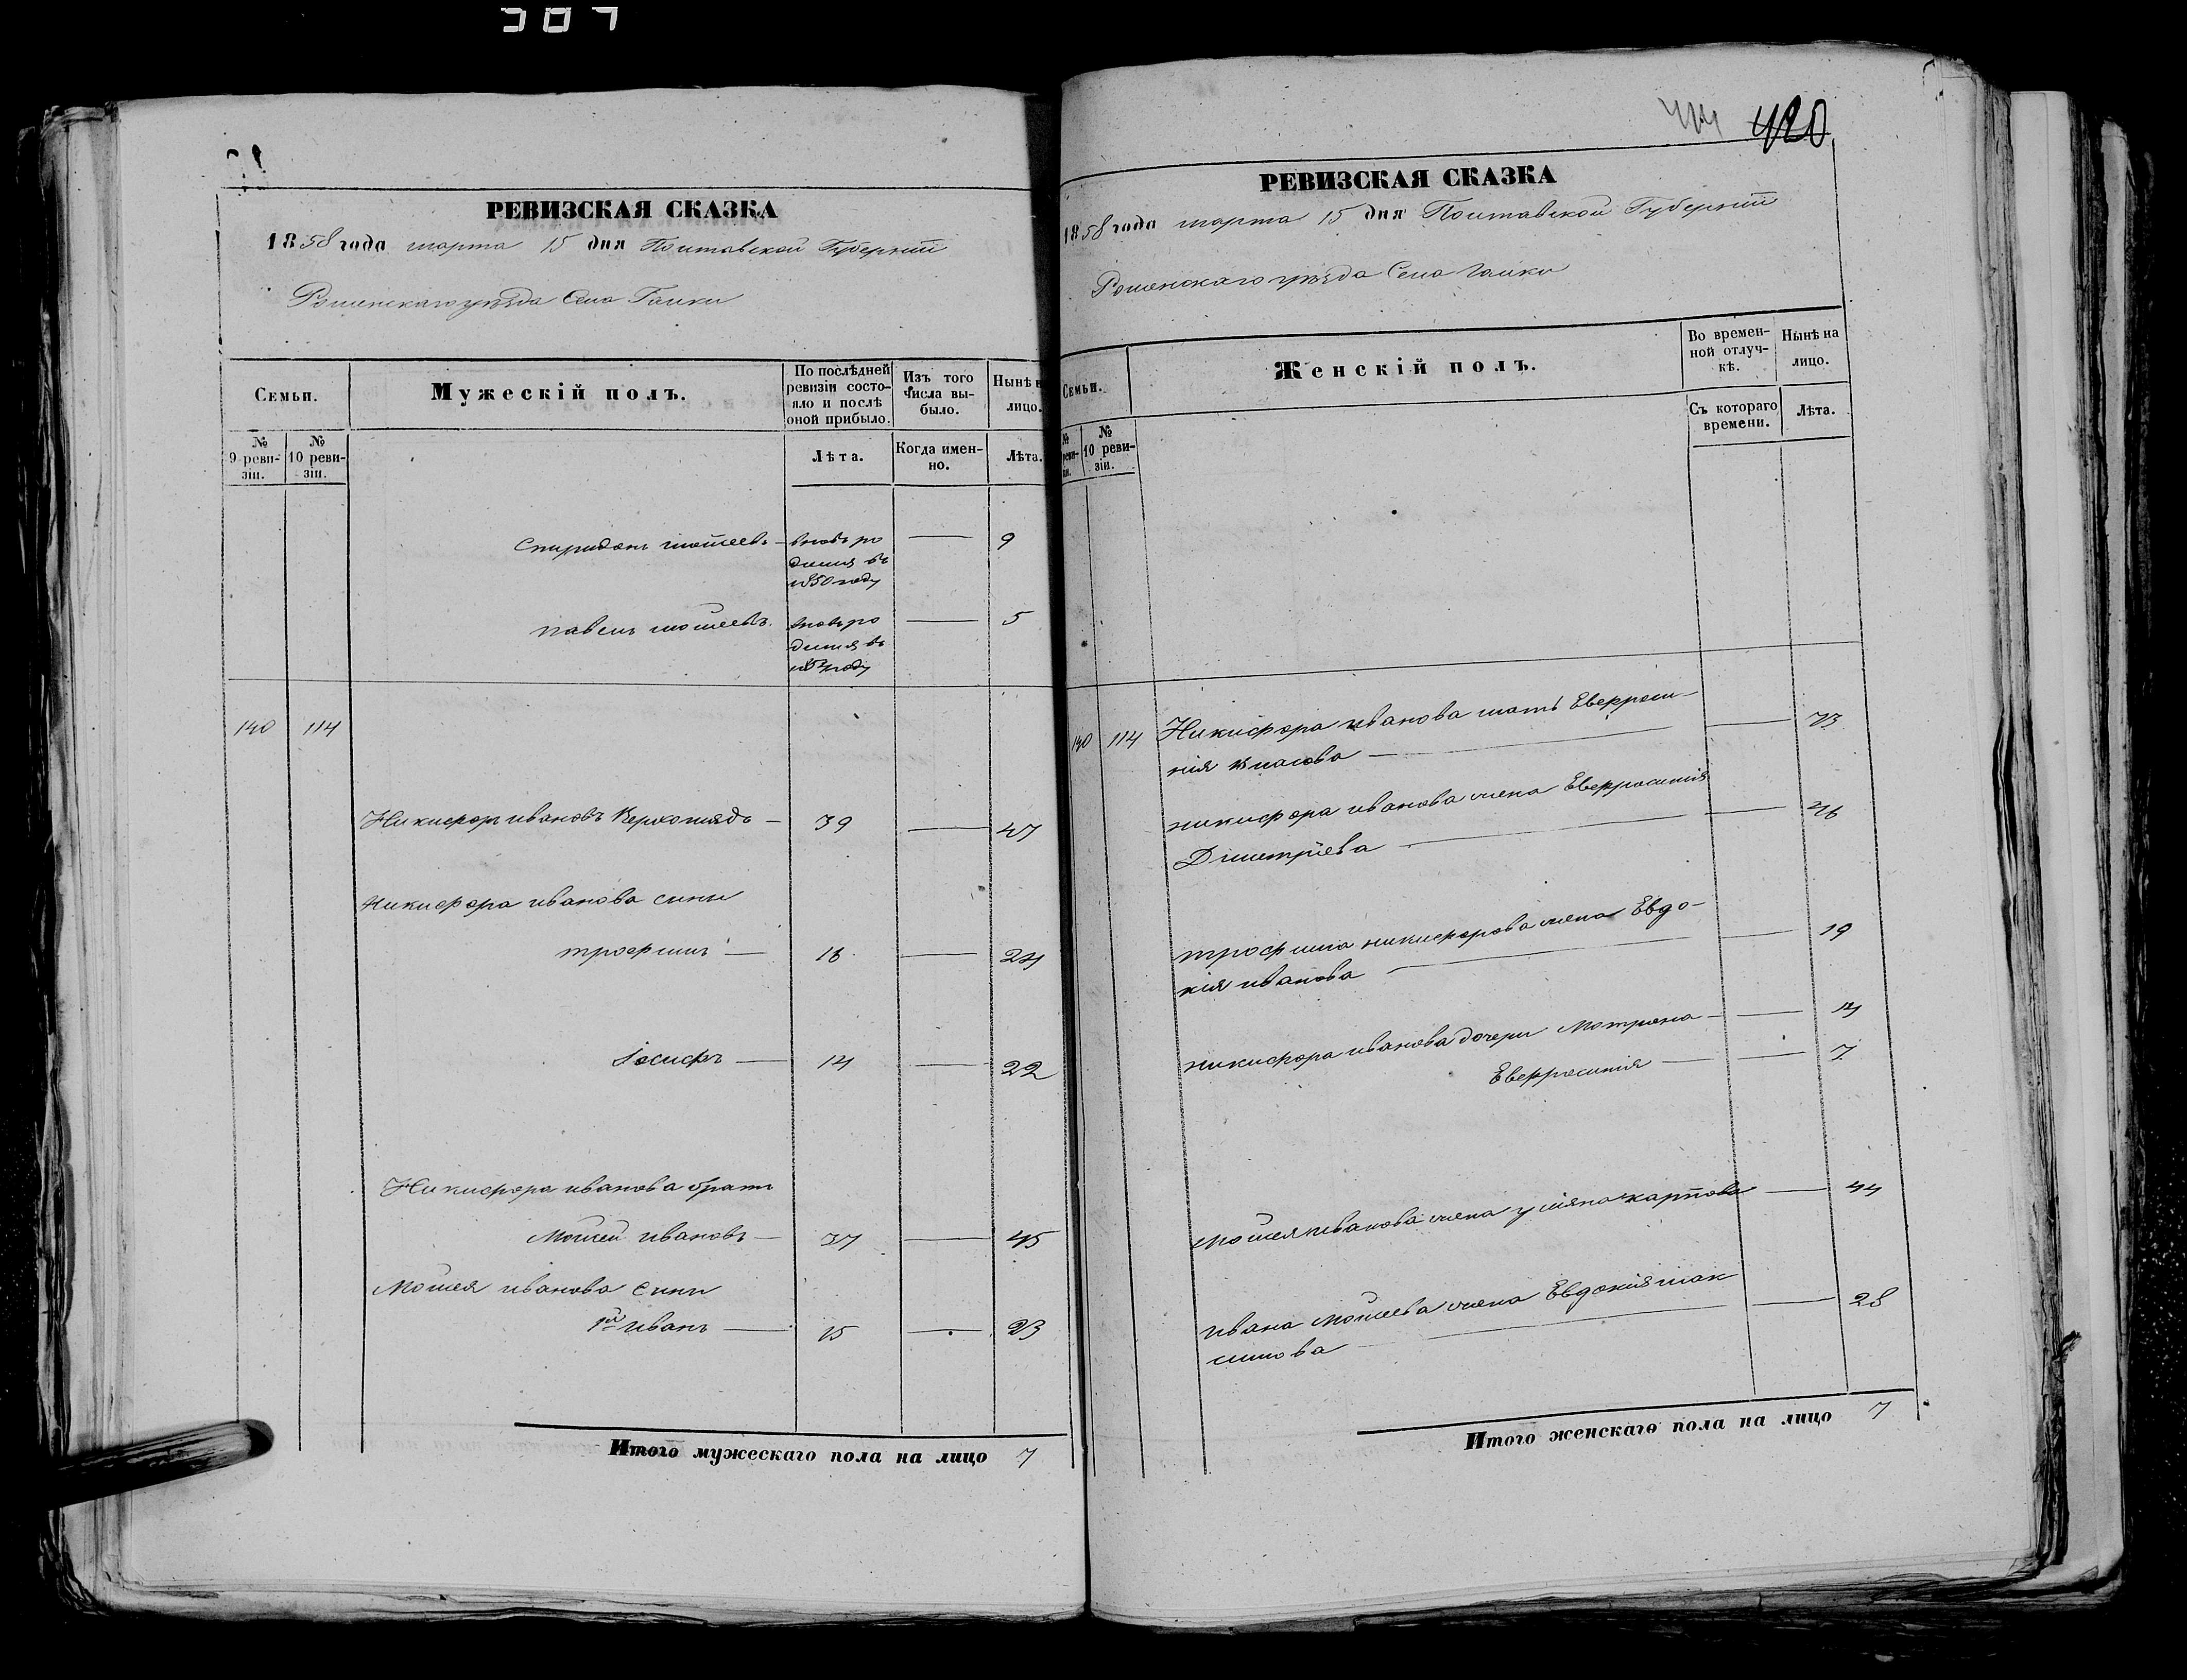 307
РЕВИЗСКАЯ СКАЗКА
1858 года марта 15 дня Полтавской Губерніи
Роменскаго уѣзда Села Галки
Семьи.
Мужескій полъ.
По послѣдней ревизіи состояло и послѣ оной прибыло.
Изъ того числа выбыло.
Нынѣ н
лицо.
№ 9 ревизіи.
№ 10 ревизіи.
Лѣта.
Когда именно.
Лѣта.
Спиридонъ Мойсеевъ — вновь ро — 9
дился въ
1850 году
Павелъ Мойсеевъ. вновь ро — 5
дился въ
году
140 114
Никифоръ Ивановъ — 39 — 47
Никифора Иванова сыны
Трофимъ — 16 — 24
Іосифъ — 14 — 22
Никифора Иванова братъ
Мойсей Ивановъ — 37 — 45
Мойсея Иванова сыны
1й Иванъ — 15 — 23
Итого мужескаго пола на лицо 7
420
РЕВИЗСКАЯ СКАЗКА
1858 года марта 15 дня Полтавской Губерніи
Роменскаго уѣзда Села Галки
Семьи.
Женскій полъ.
Во временной отлучкѣ.
Нынѣ на лицо.
№ реви-зи.
№ 10 ревизіи.
Съ котораго времени.
Лѣта.
140 114 Никифора Иванова мать Евфроси- — 73
нія Власова —
Никифора Иванова жена Евфросинія — 46
Дмитріева —
Трофима Никифорова жена Евдо- — 19
кія Иванова —
Никифора Иванова дочери Мотрона — — 14
Евфросинія — — 7
Мойсея Иванова жена Уліяна Карпова — 44
Ивана Мойсеева жена Евдокія Мак — 28
симова —
Итого женскаго пола на лицо 7